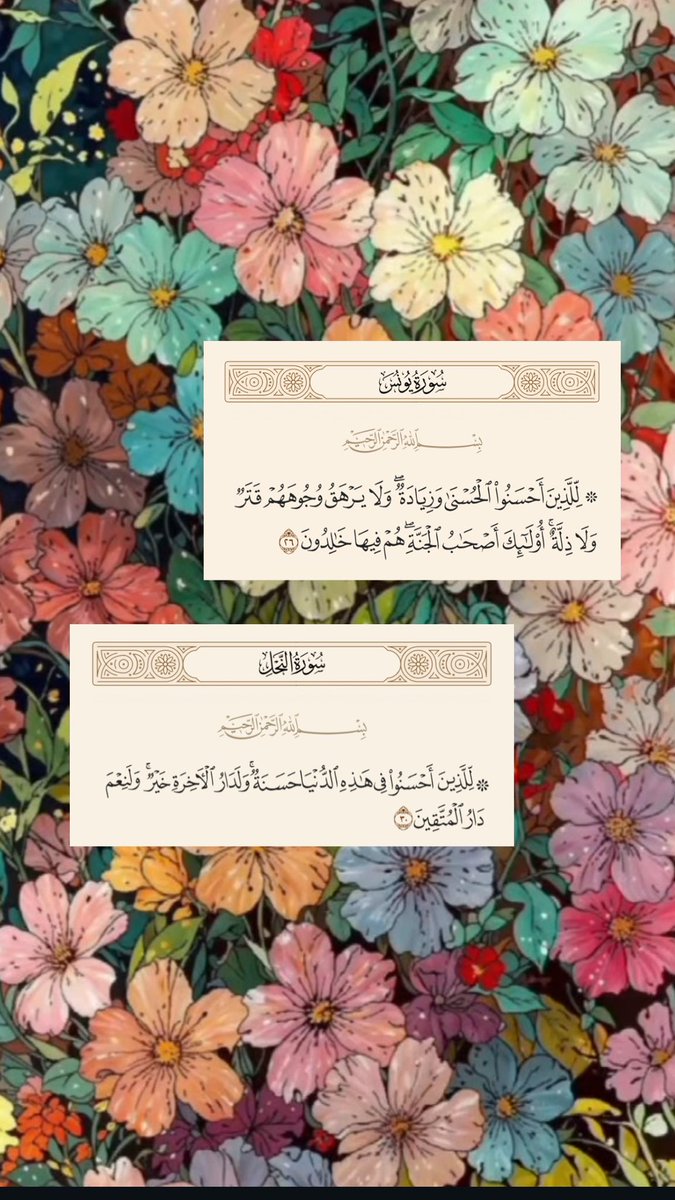 سُورَةُ يُونُسَ
بِسْمِ ٱللَّهِ ٱلرَّحْمَٰنِ ٱلرَّحِيمِ
۞ لِّلَّذِينَ أَحْسَنُواْ ٱلْحُسْنَىٰ وَزِيَادَةٌۖ وَلَا يَرْهَقُ وُجُوهَهُمْ قَتَرٌ
وَلَا ذِلَّةٌۚ أُوْلَٰٓئِكَ أَصْحَٰبُ ٱلْجَنَّةِۖ هُمْ فِيهَا خَٰلِدُونَ ٢٦
سُورَةُ النَّحْلِ
بِسْمِ ٱللَّهِ ٱلرَّحْمَٰنِ ٱلرَّحِيمِ
۞ لِّلَّذِينَ أَحْسَنُواْ فِي هَٰذِهِ ٱلدُّنْيَا حَسَنَةٌۚ وَلَدَارُ ٱلْأٓخِرَةِ خَيْرٌۚ وَلَنِعْمَ
دَارُ ٱلْمُتَّقِينَ ٣٠